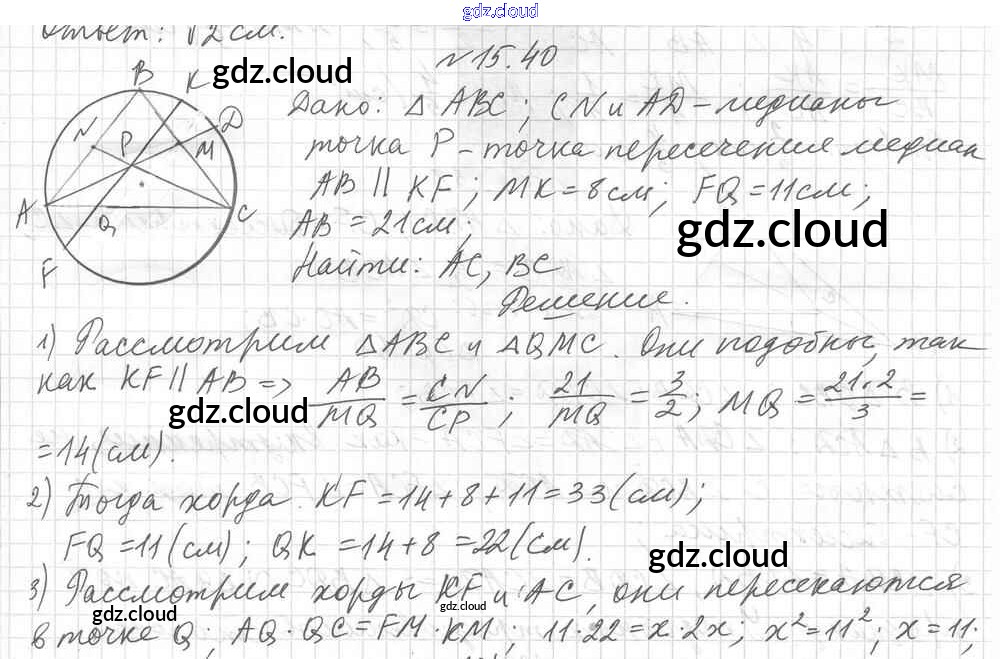 gdz.cloud
Ответ: √2 см.
№15.40
gdz.cloud
B K
N D
P M
A Q C
F
Дано: △ABC; CN и AD – медианы
точка P – точка пересечения медиан
AB || KF; MK = 8 см; FQ = 11 см;
AB = 21 см;
gdz.cloud
Найти: AC, BC
Решение.
1) Рассмотрим △ABC и △QMC. Они подобны, так
как KF || AB => AB/MQ = CN/CP; 21/MQ = 3/2; MQ = 21·2/3 =
gdz.cloud
= 14 (см).
2) Тогда хорда KF = 14 + 8 + 11 = 33 (см);
FQ = 11 (см); QK = 14 + 8 = 22 (см).
gdz.cloud
3) Рассмотрим хорды KF и AC, они пересекаются
gdz.cloud
gdz.cloud
в точке Q; AQ · QC = FM · KM; 11·22 = x·2x; x² = 11²; x = 11;